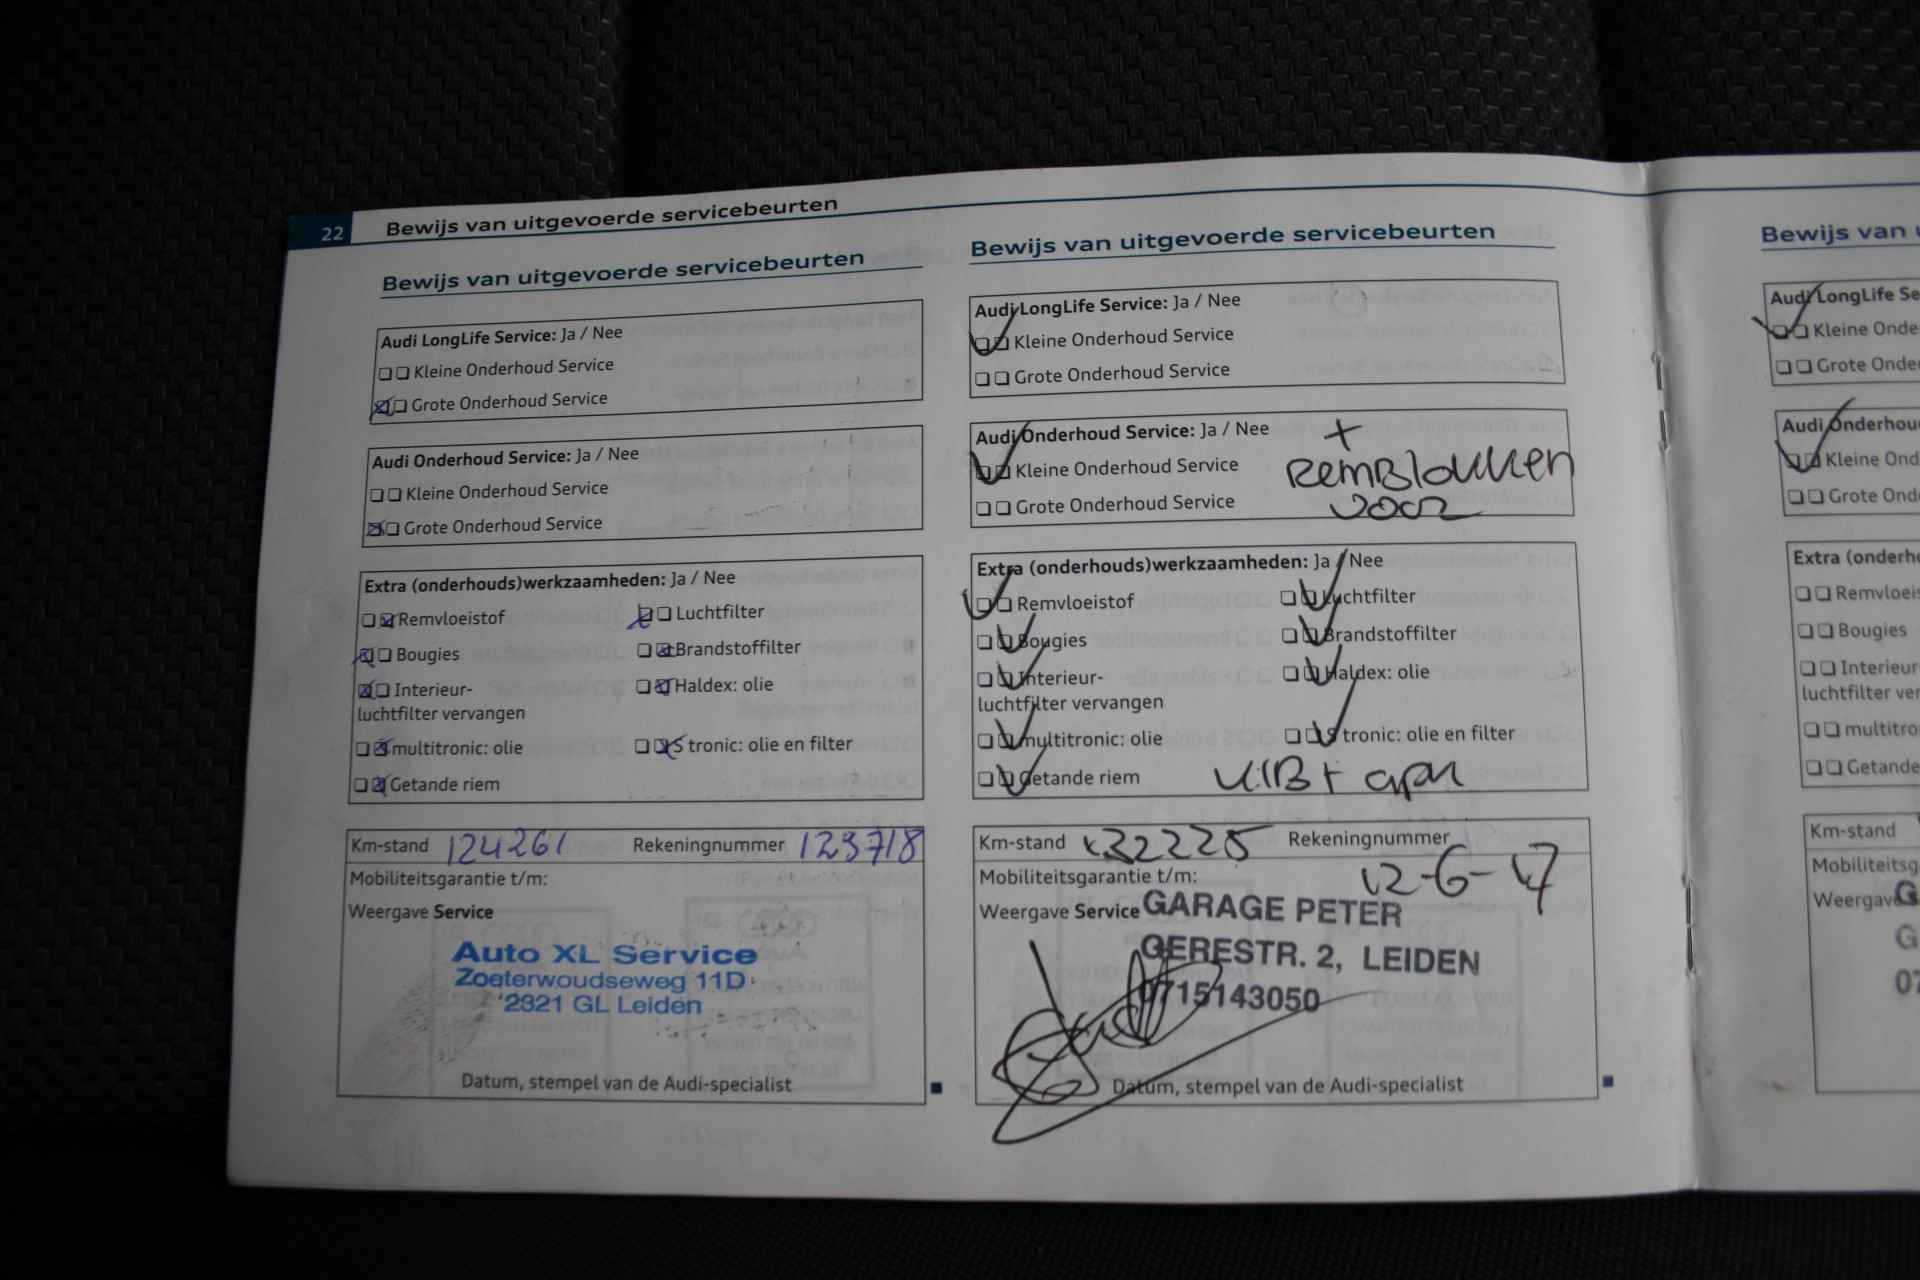 22 Bewijs van uitgevoerde servicebeurten
Bewijs van uitgevoerde servicebeurten
Audi LongLife Service: Ja / Nee
Kleine Onderhoud Service
Grote Onderhoud Service
Audi Onderhoud Service: Ja / Nee
Kleine Onderhoud Service
Grote Onderhoud Service
Extra (onderhouds)werkzaamheden: Ja / Nee
Remvloeistof Luchtfilter
Bougies Brandstoffilter
Interieur- Haldex: olie
luchtfilter vervangen
multitronic: olie S tronic: olie en filter
Getande riem
Km-stand 124261 Rekeningnummer 123718
Mobiliteitsgarantie t/m:
Weergave Service
Auto XL Service
Zoeterwoudseweg 11D
2321 GL Leiden
Datum, stempel van de Audi-specialist
Bewijs van uitgevoerde servicebeurten
Audi LongLife Service: Ja / Nee
Kleine Onderhoud Service
Grote Onderhoud Service
Audi Onderhoud Service: Ja / Nee +
Kleine Onderhoud Service RemBlokken
Grote Onderhoud Service
Extra (onderhouds)werkzaamheden: Ja / Nee
Remvloeistof Luchtfilter
Bougies Brandstoffilter
Interieur- Haldex: olie
luchtfilter vervangen
multitronic: olie S tronic: olie en filter
Getande riem
Km-stand 132225 Rekeningnummer
Mobiliteitsgarantie t/m: 12-6-17
Weergave Service GARAGE PETER
GERESTR. 2, LEIDEN
0715143050
Datum, stempel van de Audi-specialist
Bewijs van
Audi LongLife Se
Kleine Onder
Grote Onder
Audi Onderhou
Kleine Ond
Grote Ond
Extra (onderh
Remvloeis
Bougies
Interieur
luchtfilter ver
multitro
Getande
Km-stand
Mobiliteitsg
Weergave G
G
07